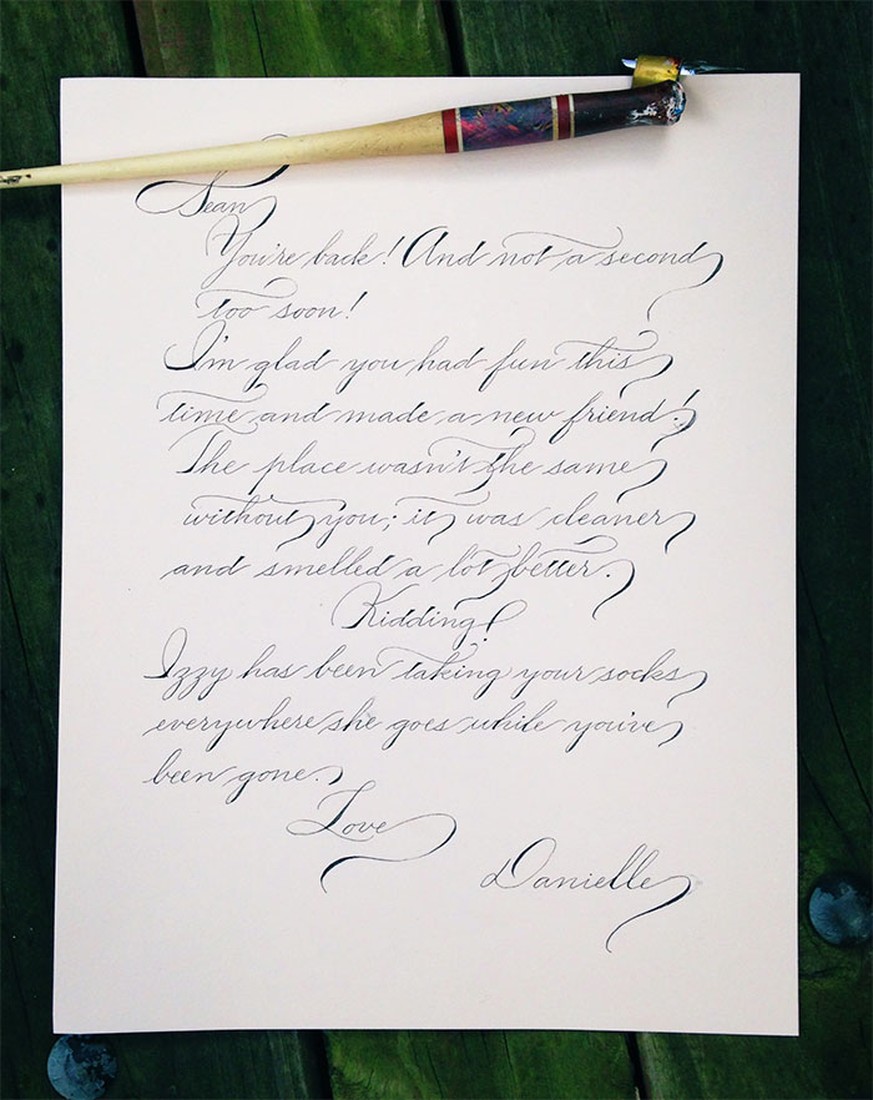 Sean
You're back! And not a second
too soon!
I'm glad you had fun this
time and made a new friend!
The place wasn't the same
without you; it was cleaner
and smelled a lot better.
Kidding!
Izzy has been taking your socks
everywhere she goes while you've
been gone.
Love
Danielle